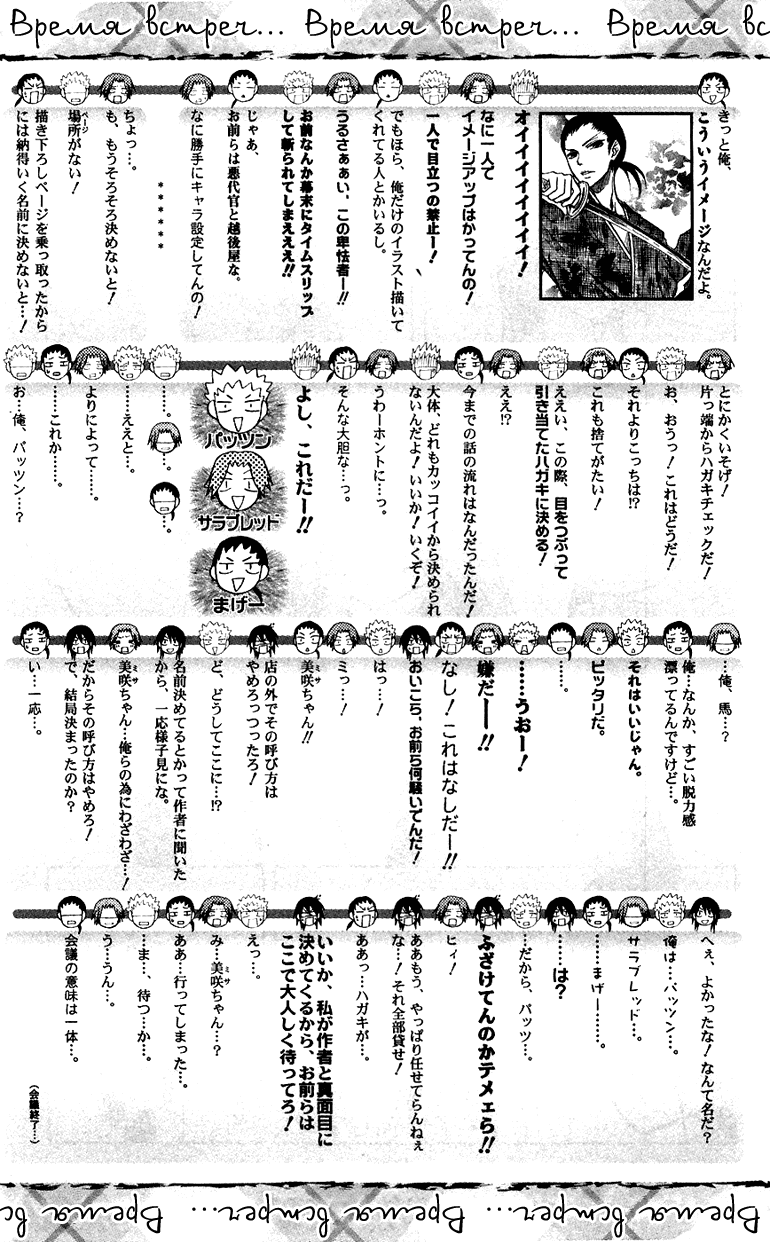 Время встреч... Время встреч... Время вс
きっと俺、
こういうイメージなんだよ。
オイイイイイイイイ！
なに一人で
イメージアップはかってんの！
一人で目立つの禁止ー！
でもほら、俺だけのイラスト描いて
くれてる人とかいるし。
うるさぁぁい、この卑怯者ー!!
お前なんか幕末にタイムスリップ
して斬られてしまえええ!!
じゃあ、
お前らは悪代官と越後屋な。
なに勝手にキャラ設定してんの！
＊＊＊＊＊
ちょっ…。
も、もうそろそろ決めないと！
場所がない！
ページ
描き下ろしページを乗っ取ったから
には納得いく名前に決めないと…！
とにかくいそげ！
片っ端からハガキチェックだ！
お、おうっ！これはどうだ！
それよりこっちは!?
これも捨てがたい！
ええい、この際、目をつぶって
引き当てたハガキに決める！
ええ!?
今までの話の流れはなんだったんだ！
大体、どれもカッコイイから決められ
ないんだよ！いいか！いくぞ！
うわーホントに…っ。
そんな大胆な…っ。
よし、これだー!!
バッツン
サラブレッド
まげー
……。
……。
……。
……ええと…。
よりによって……。
……これか……。
お…俺、バッツン…？
…俺、馬…？
俺…なんか、すごい脱力感
漂ってるんですけど…。
それはいいじゃん。
ピッタリだ。
……。
……うおー！
嫌だー!!
なし！これはなしだー!!
おいこら、お前ら何騒いでんだ！
はっ…！
ミっ…！
美咲ちゃん!!
ミサ
店の外でその呼び方は
やめろっつったろ！
ど、どうしてここに…!?
名前決めてるとかって作者に聞いた
から、一応様子見にな。
美咲ちゃん…俺らの為にわざわざ…！
ミサ
だからその呼び方はやめろ！
で、結局決まったのか？
い…一応…。
へぇ、よかったな！なんて名だ？
俺は…バッツン…。
サラブレッド…。
……まげー……。
……は？
…だから、バッツ…。
ふざけてんのかテメェら!!
ヒィ！
ああもう、やっぱり任せてらんねぇ
な…！それ全部貸せ！
ああっ…ハガキが…。
いいか、私が作者と真面目に
決めてくるから、お前らは
ここで大人しく待ってろ！
えっ…。
み…美咲ちゃん…？
ミサ
ああ…行ってしまった…。
…ま、待つ…か…。
う…うん…。
会議の意味は一体…。
（会議終了…）
Время встреч... Время встреч... Время вс